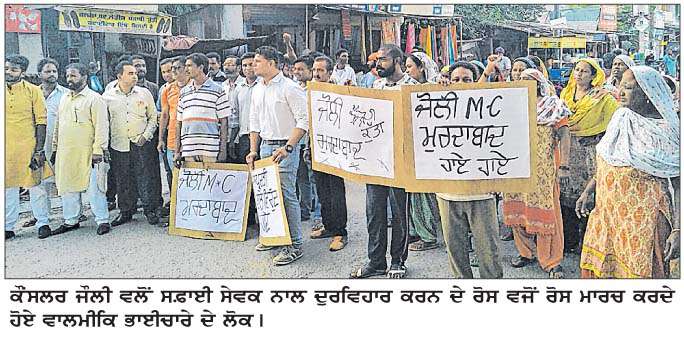 ਜੌਲੀ
ਮੁਰਦਾਬਾਦ
ਜੌਲੀ M.C
ਮੁਰਦਾਬਾਦ
ਹਾਏ ਹਾਏ
ਜੌਲੀ M.C
ਮੁਰਦਾਬਾਦ
ਕੌਸਲਰ ਜੌਲੀ ਵਲੋਂ ਸਫ਼ਾਈ ਸੇਵਕ ਨਾਲ ਦੁਰਵਿਹਾਰ ਕਰਨ ਦੇ ਰੋਸ ਵਜੋਂ ਰੋਸ ਮਾਰਚ ਕਰਦੇ
ਹੋਏ ਵਾਲਮੀਕਿ ਭਾਈਚਾਰੇ ਦੇ ਲੋਕ।